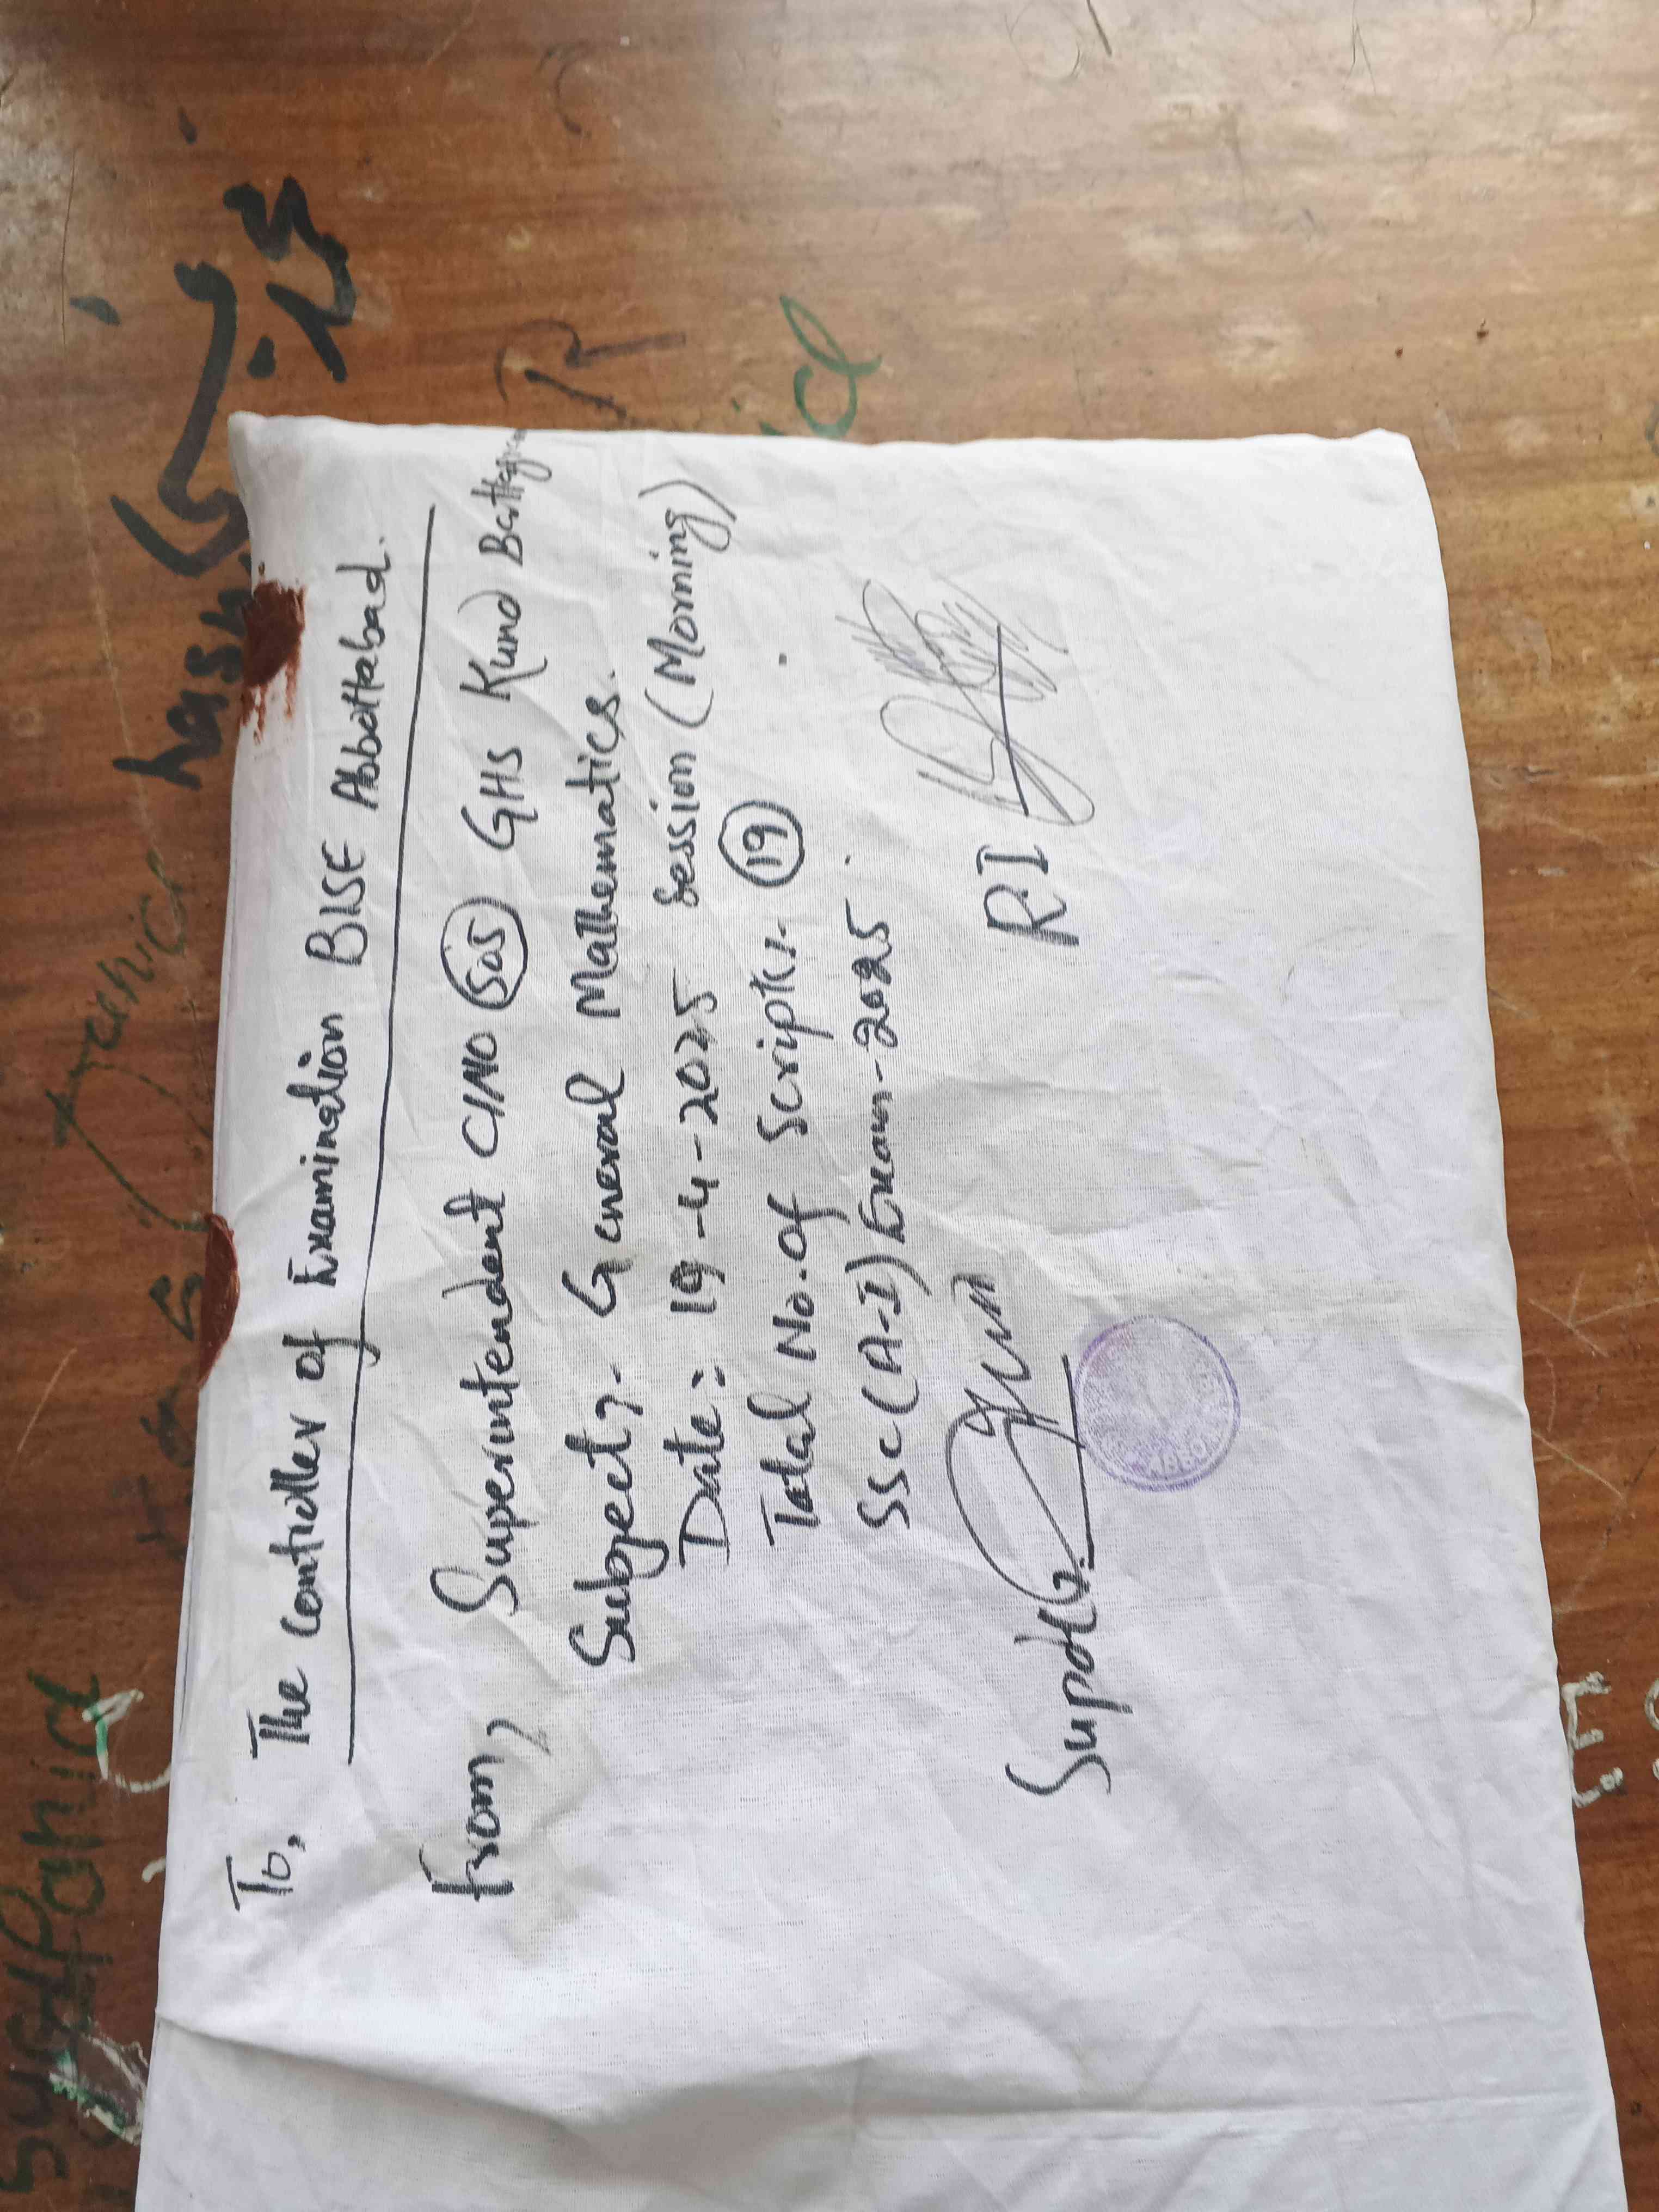 To, The Controller of Examination BISE Abbottabad.
From, Superintendent C/NO 505 GHS Kund Battagram
Subject:- General Mathematics.
Date: 19-4-2025 Session (Morning)
Total No. of Scripts:- 19
SSC (A-I) Exam-2025
Supdtt:
RI